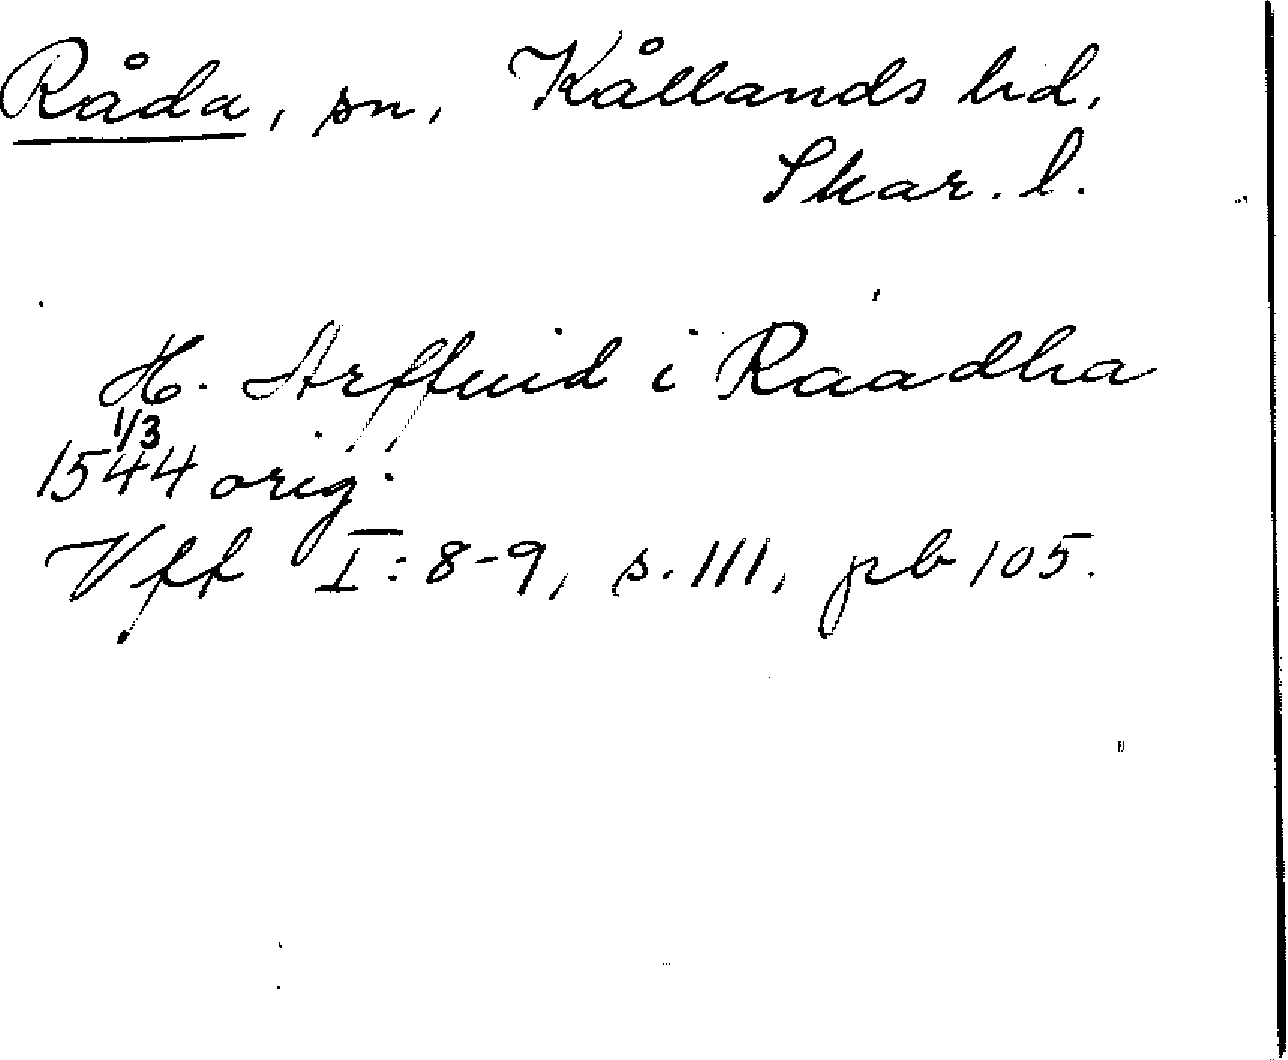 Råda, sn, Kållands hd,
Skar. l.
H. Arffuid i Raadha
1/3
1544 orig.
Vff I: 8-9, s. 111, pb 105.